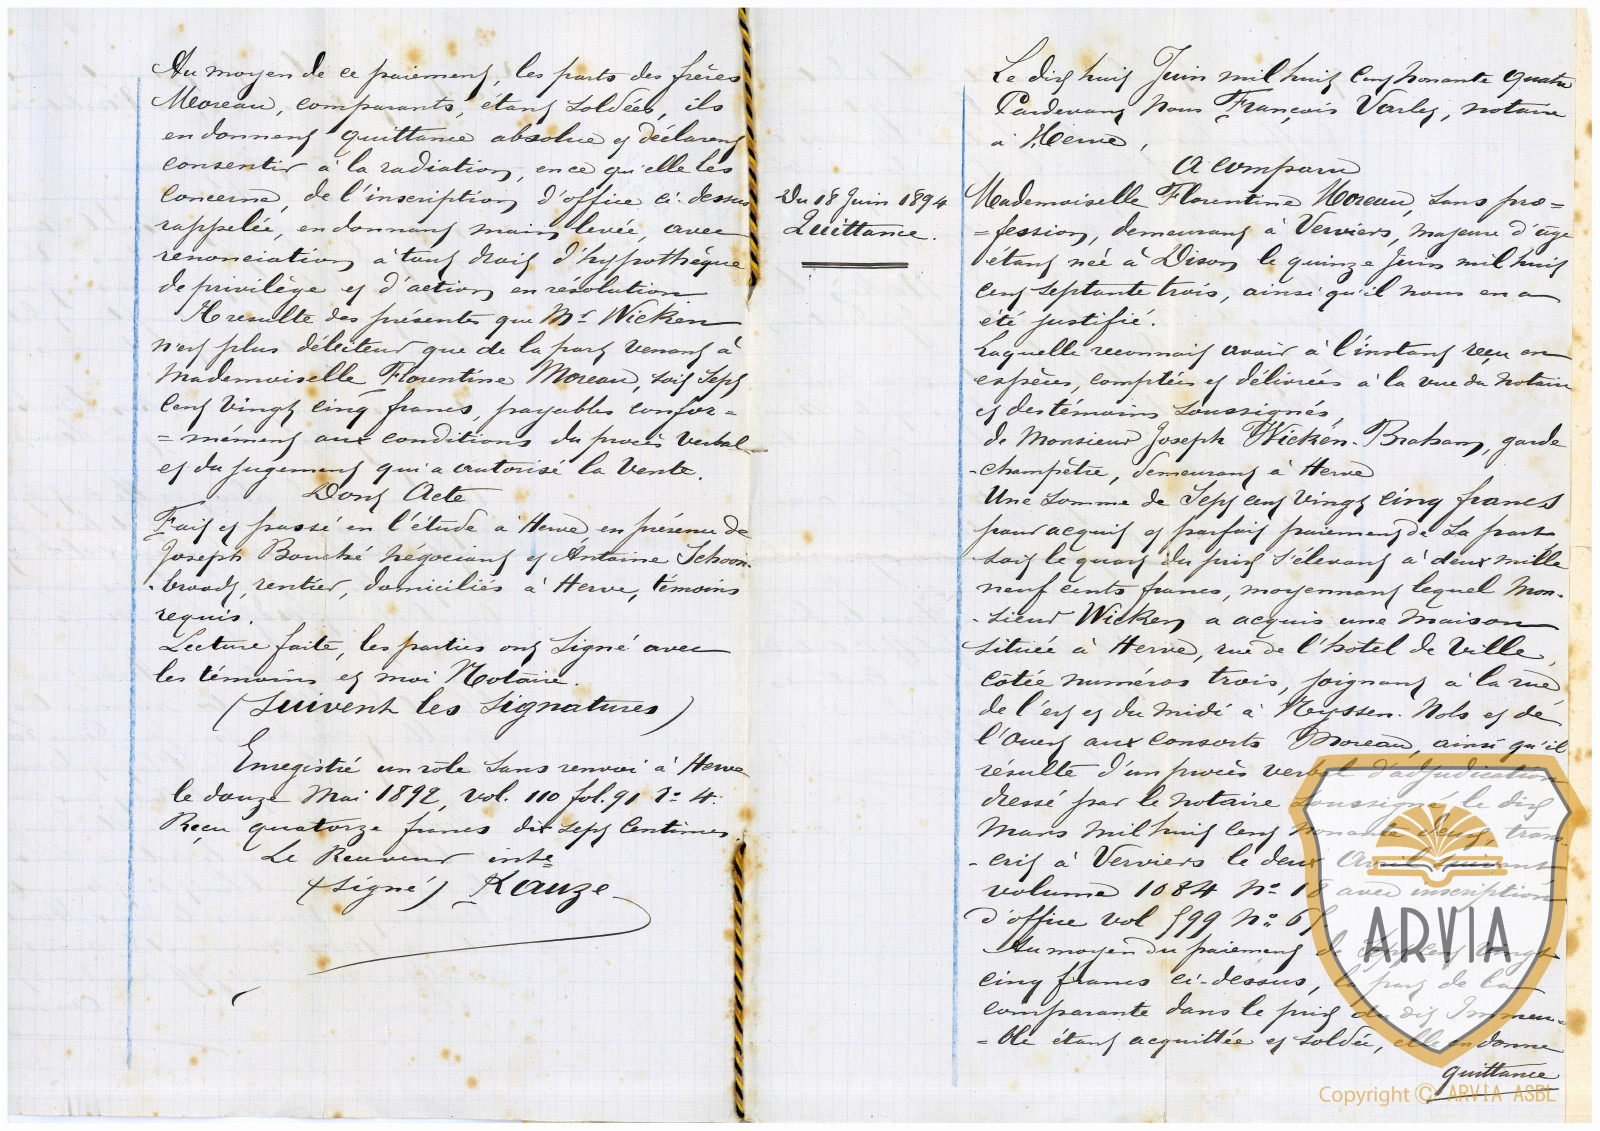 Au moyen de ce paiement, les parts des frères
Moreau, comparants, étant soldées, ils
en donnent quittance absolue et déclarent
consentir à la radiation, en ce qu'elle les
concerne, de l'inscription d'office ci-dessus
rappelée, en donnant main levée, avec
renonciation à tout droit d'hypothèque
de privilège et d'action en résolution
Il résulte des présentes que Mr Wicken
n'est plus débiteur que de la part venant à
Mademoiselle Florentine Moreau, soit sept
cent vingt cinq francs, payables confor=
=mément aux conditions du procès verbal
et du jugement qui a autorisé la vente.
Dont Acte
Fait et passé en l'étude à Herve en présence de
Joseph Bouché négociant et Antoine Schoon-
-broodt, rentier, domiciliés à Herve, témoins
requis.
Lecture faite, les parties ont signé avec
les témoins et moi Notaire.
(Suivent les signatures)
Enregistré un rôle sans renvoi à Herve
le douze Mai 1892, vol. 110 fol. 91 Co 4.
Reçu quatorze francs dix sept centimes.
Le Receveur inte
(signé) Kauze
Du 18 Juin 1894
Quittance.
Le dix huit Juin mil huit cent nonante quatre
Pardevant Nous François Varlet, notaire
à Herve,
A comparu
Mademoiselle Florentine Moreau, sans pro=
=fession, demeurant à Verviers, majeure d'âge
étant née à Dison le quinze Juin mil huit
cent septante trois, ainsi qu'il nous en a
été justifié.
Laquelle reconnait avoir à l'instant reçu en
espèces, comptées et délivrées à la vue du Notaire
et des témoins soussignés,
de Monsieur Joseph Wicken-Braham, garde
-champêtre, demeurant à Herve
Une somme de Sept cent vingt cinq francs
pour acquit et parfait paiement de sa part
soit le quart du prix s'élevant à deux mille
neuf cents francs, moyennant lequel Mon-
-sieur Wicken a acquis une maison
située à Herve, rue de l'hôtel de Ville,
côtée numéros trois, joignant à la rue
de l'est et du midi à Nyssen-Nols et de
l'ouest aux consorts Moreau, ainsi qu'il
résulte d'un procès verbal d'adjudication
dressé par le notaire soussigné le dix
Mars mil huit cent nonante deux, trans-
-crit à Verviers le deux Avril suivant
volume 1084 No 18 avec inscription
d'office vol 599 No 65.
Au moyen du paiement de sept cent vingt
cinq francs ci-dessus, la part de la
comparante dans le prix du dit Immeu=
=ble étant acquittée et soldée, elle en donne
quittance
ARVIA
Copyright © ARVIA ASBL